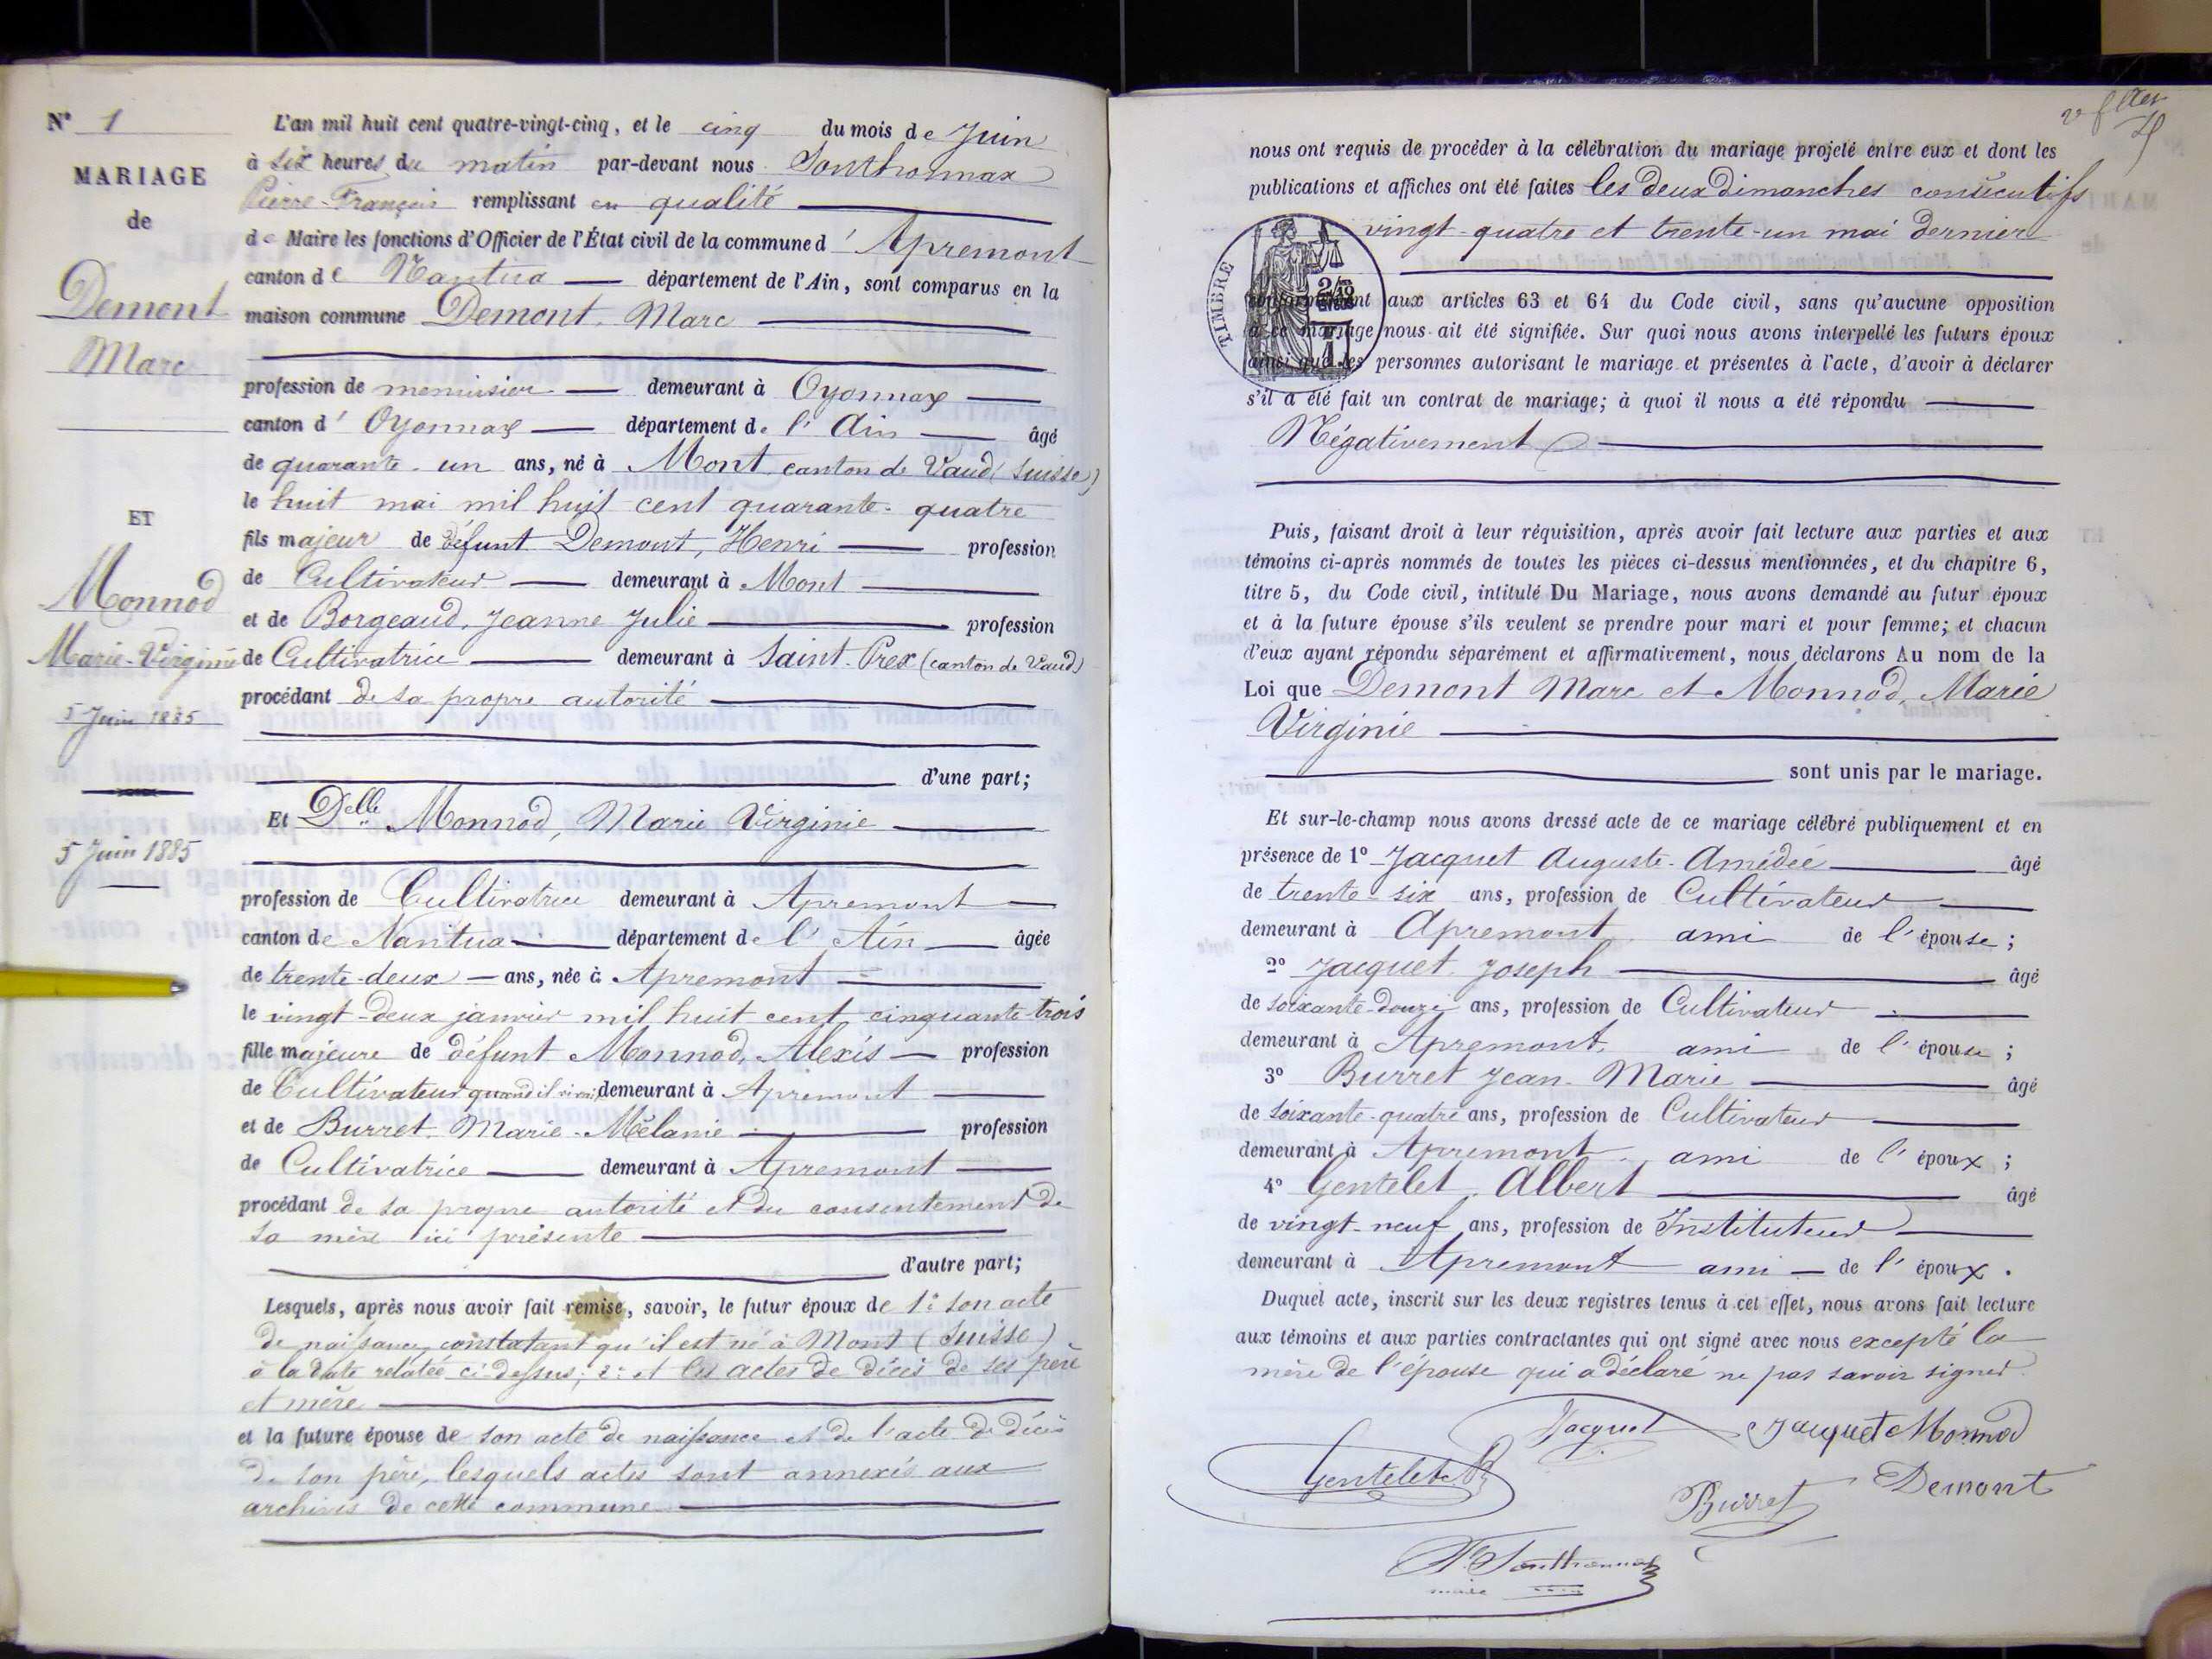 N° 1
MARIAGE
de
Demont
Marc
ET
Monnod
Marie-Virginie
5 Juin 1885
5 Juin 1885
L'an mil huit cent quatre-vingt-cinq, et le cinq du mois de Juin
à six heures du matin par-devant nous Sonthonnax
Pierre-François remplissant en qualité
de Maire les fonctions d'Officier de l'État civil de la commune d'Apremont
canton de Nantua département de l'Ain, sont comparus en la
maison commune Demont, Marc
profession de menuisier demeurant à Oyonnax
canton d'Oyonnax département de l'Ain âgé
de quarante-un ans, né à Mont, canton de Vaud (Suisse)
le huit mai mil huit cent quarante-quatre
fils majeur de défunt Demont, Henri profession
de Cultivateur demeurant à Mont
et de Borgeaud, Jeanne Julie profession
de Cultivatrice demeurant à Saint-Prex (canton de Vaud)
procédant de sa propre autorité
d'une part;
Et Delle Monnod, Marie Virginie
profession de Cultivatrice demeurant à Apremont
canton de Nantua département de l'Ain âgée
de trente-deux ans, née à Apremont
le vingt-deux janvier mil huit cent cinquante-trois
fille majeure de défunt Monnod, Alexis profession
de Cultivateur quand il vivait demeurant à Apremont
et de Burret, Marie-Mélanie profession
de Cultivatrice demeurant à Apremont
procédant de sa propre autorité et du consentement de
sa mère ici présente
d'autre part;
Lesquels, après nous avoir fait remise, savoir, le futur époux de 1° son acte
de naissance, constatant qu'il est né à Mont (Suisse)
à la date relatée ci-dessus; 2° et les actes de décès de ses père
et mère
et la future épouse de son acte de naissance et de l'acte de décès
de son père, lesquels actes sont annexés aux
archives de cette commune
nous ont requis de procéder à la célébration du mariage projeté entre eux et dont les
publications et affiches ont été faites les deux dimanches consécutifs
vingt-quatre et trente-un mai dernier
TIMBRE
conformément aux articles 63 et 64 du Code civil, sans qu'aucune opposition
à ce mariage nous ait été signifiée. Sur quoi nous avons interpellé les futurs époux
ainsi que les personnes autorisant le mariage et présentes à l'acte, d'avoir à déclarer
s'il a été fait un contrat de mariage; à quoi il nous a été répondu
Négativement
Puis, faisant droit à leur réquisition, après avoir fait lecture aux parties et aux
témoins ci-après nommés de toutes les pièces ci-dessus mentionnées, et du chapitre 6,
titre 5, du Code civil, intitulé Du Mariage, nous avons demandé au futur époux
et à la future épouse s'ils veulent se prendre pour mari et pour femme; et chacun
d'eux ayant répondu séparément et affirmativement, nous déclarons Au nom de la
Loi que Demont Marc et Monnod, Marie
Virginie
sont unis par le mariage.
Et sur-le-champ nous avons dressé acte de ce mariage célébré publiquement et en
présence de 1° Jacquet Auguste-Amédée âgé
de trente-six ans, profession de Cultivateur
demeurant à Apremont ami de l'épouse;
2° Jacquet Joseph âgé
de soixante-douze ans, profession de Cultivateur
demeurant à Apremont, ami de l'épouse;
3° Burret Jean-Marie âgé
de soixante-quatre ans, profession de Cultivateur
demeurant à Apremont ami de l'époux;
4° Gentelet, Albert âgé
de vingt-neuf ans, profession de Instituteur
demeurant à Apremont ami de l'époux.
Duquel acte, inscrit sur les deux registres tenus à cet effet, nous avons fait lecture
aux témoins et aux parties contractantes qui ont signé avec nous excepté la
mère de l'épouse qui a déclaré ne pas savoir signer
Jacquet Jacquet Monnod
Gentelet Burret Demont
Sonthonnax
maire